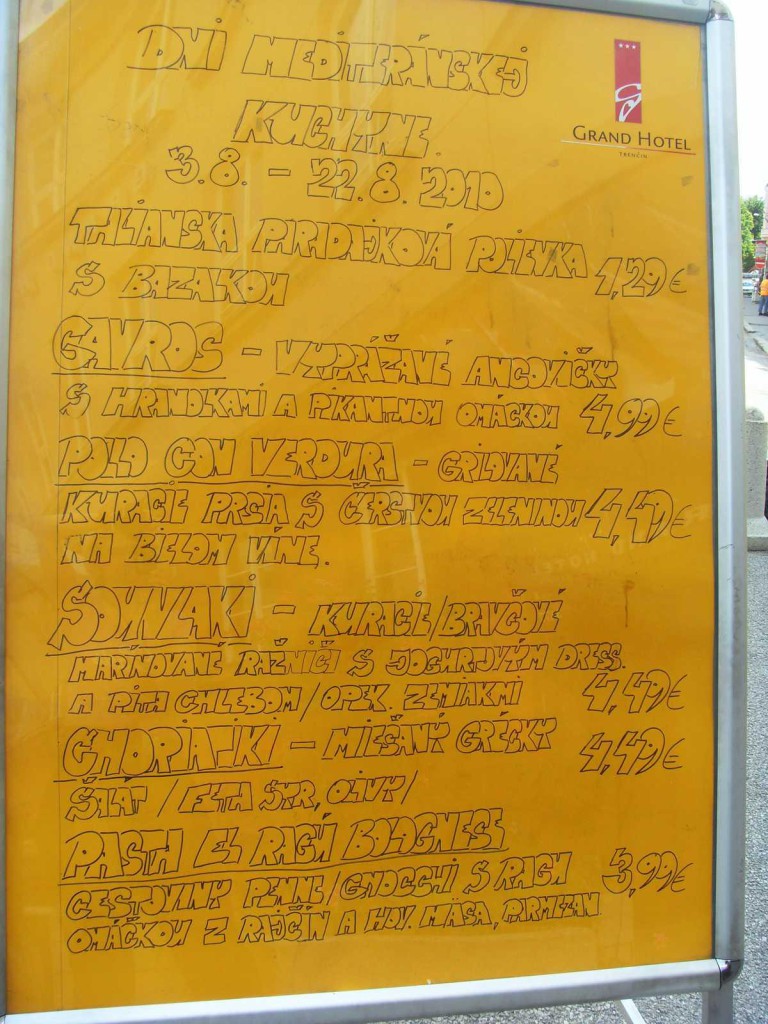 DNI MEDITERÁNSKEJ
KUCHYNE
GRAND HOTEL
TRENČÍN
3.8. - 22.8. 2010
TALIANSKA PARADAJKOVÁ POLIEVKA
S BAZALKOU 1,29€
GAVROS - VYPRÁŽANÉ ANČOVIČKY
S HRANOLKAMI A PIKANTNOU OMÁČKOU 4,99€
POLLO CON VERDURA - GRILOVANÉ
KURACIE PRSIA S ČERSTVOU ZELENINOU 4,49€
NA BIELOM VÍNE.
SOUVLAKI - KURACIE/BRAVČOVÉ
MARÍNOVANÉ RAŽNIČI S JOGURTOVÝM DRESS.
A PITA CHLEBOM/OPEK. ZEMIAKMI 4,49€
CHORIATIKI - MIEŠANÝ GRÉCKY 4,49€
ŠALÁT /FETA SYR, OLIVY/
PASTA EL RAGÚ BOLOGNESE
CESTOVINY PENNE/GNOCCHI S RAGU 3,99€
OMÁČKOU Z RAJČÍN A HOV. MÄSA, PARMEZÁN.